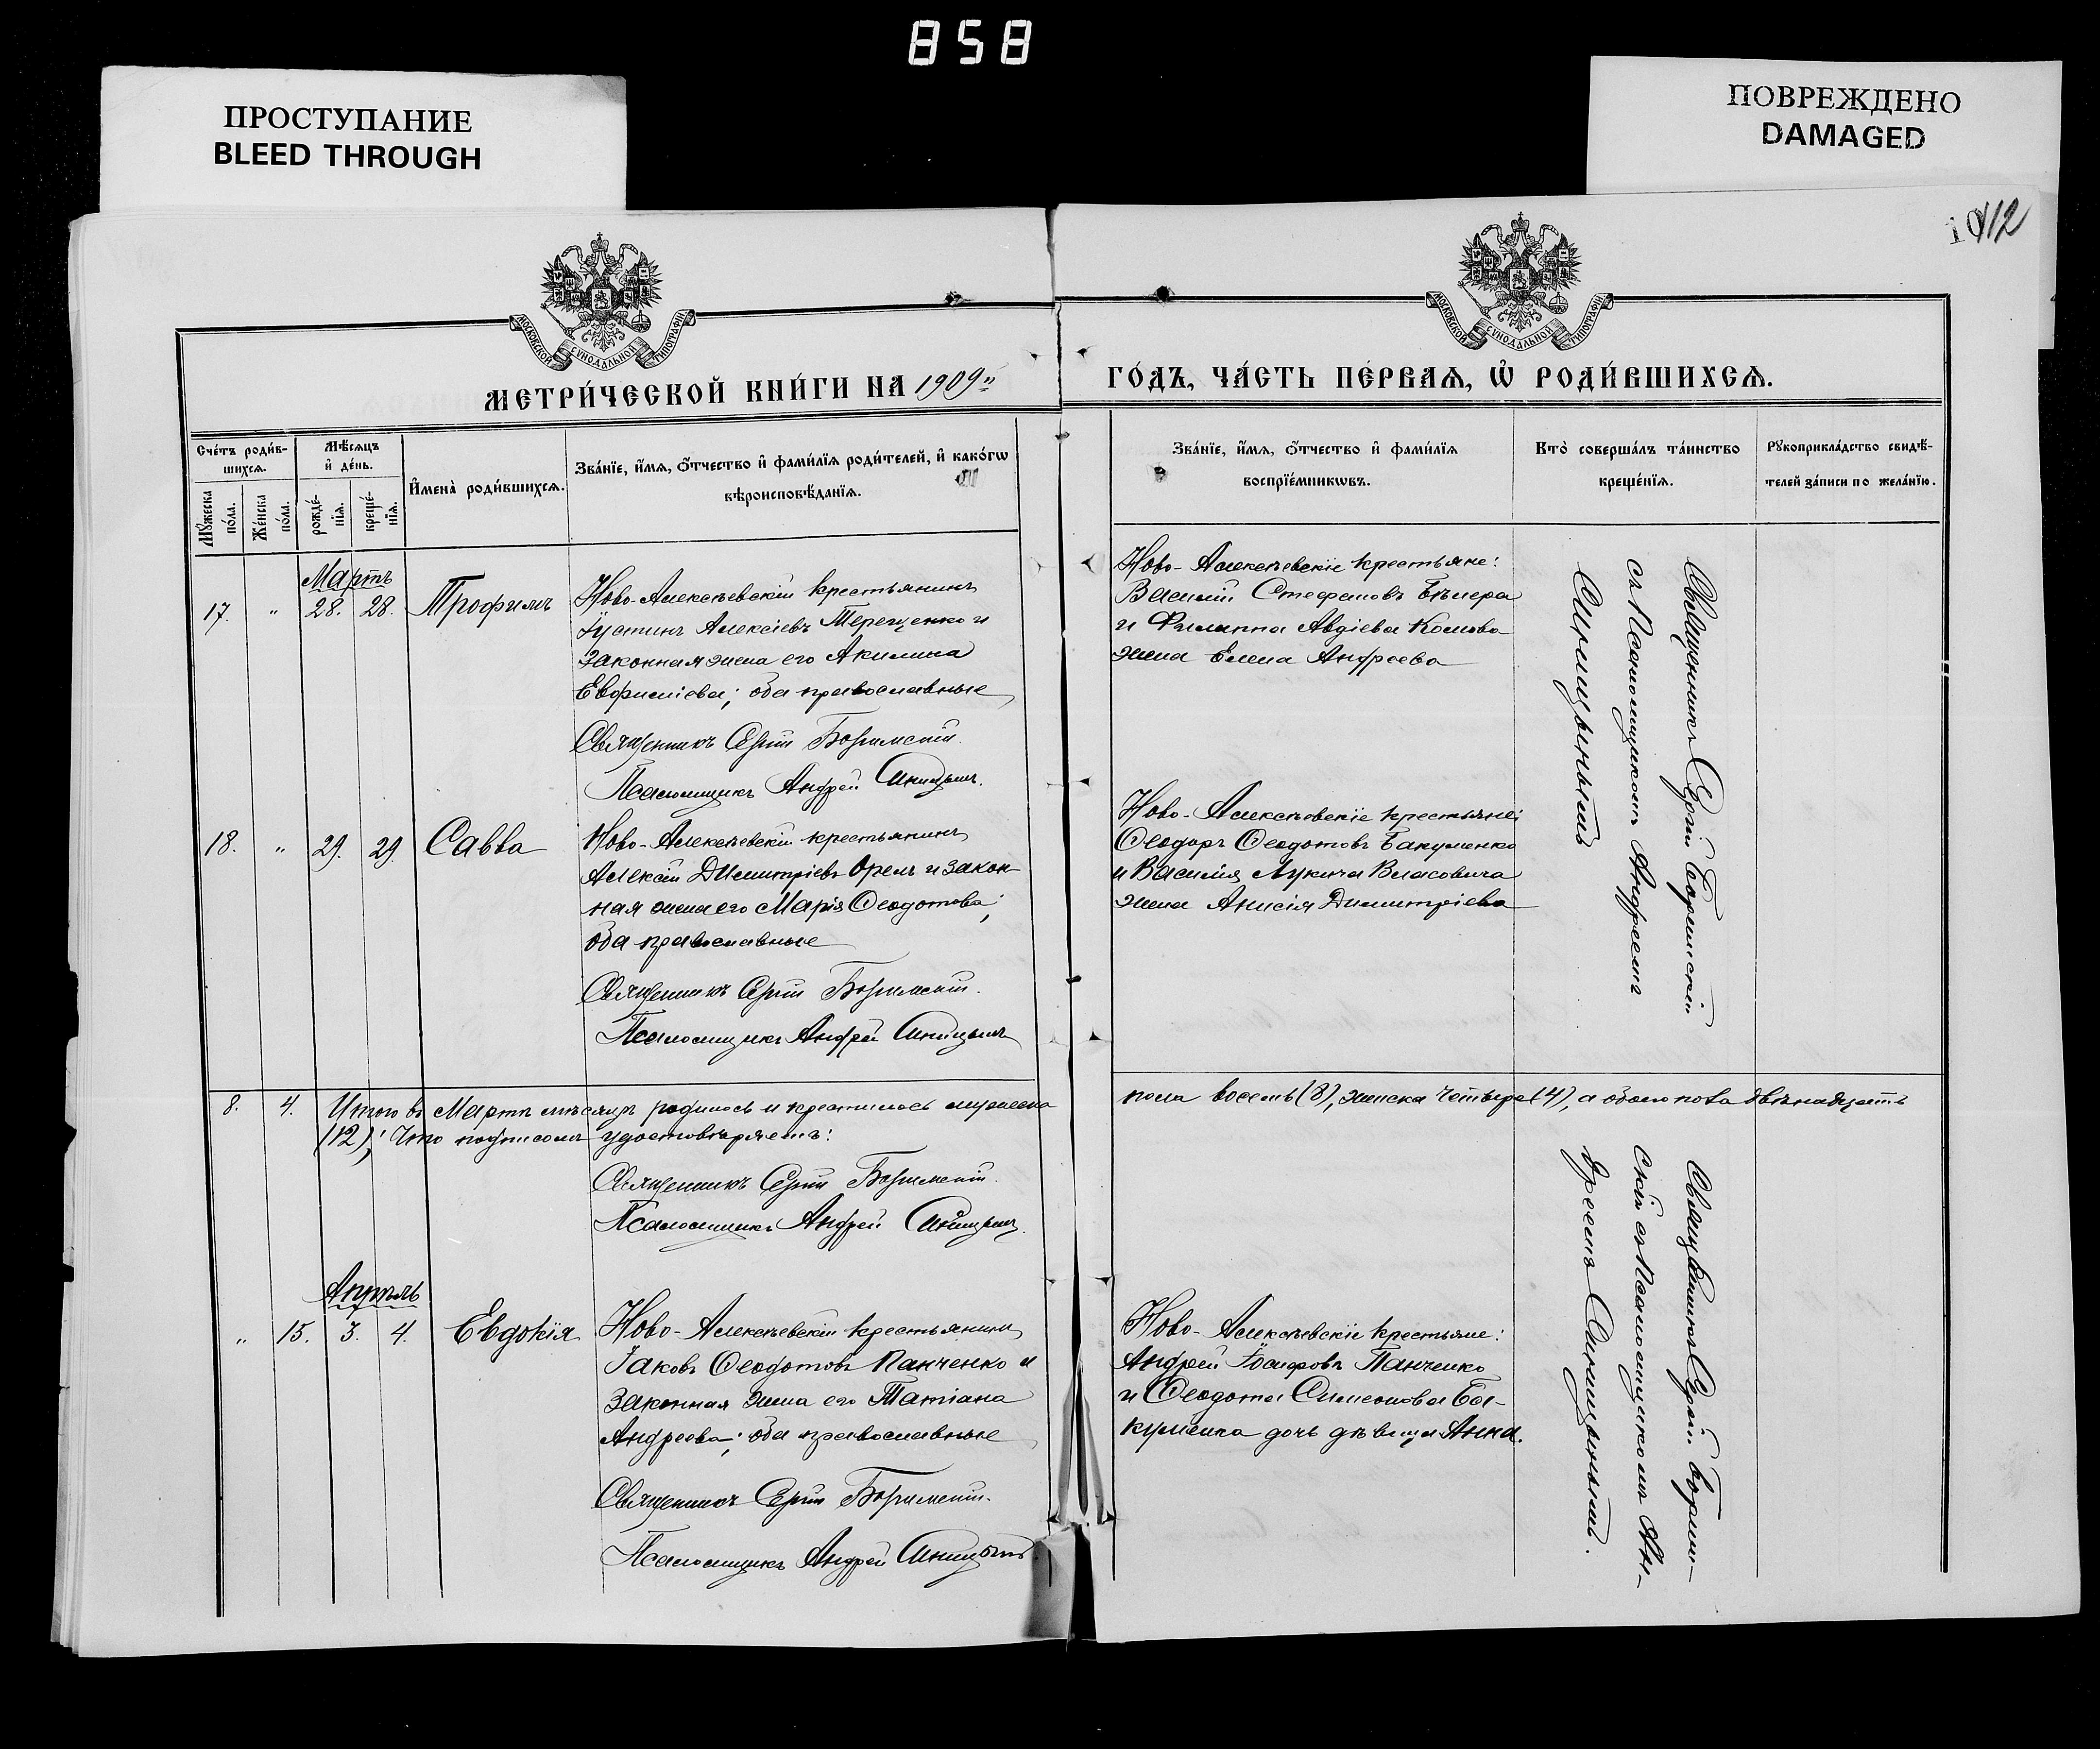 858
ПРОСТУПАНИЕ
BLEED THROUGH
ПОВРЕЖДЕНО
DAMAGED
112
МОСКОВСКОЙ СѴНОДАЛЬНОЙ ТИПОГРАФІИ
МОСКОВСКОЙ СѴНОДАЛЬНОЙ ТИПОГРАФІИ
МЕТРИ́ЧЕСКОЙ КНИ́ГИ НА 1909 ГО́ДЪ, ЧА́СТЬ ПЕ́РВАѦ, Ѡ҆ РОДИ́ВШИХСѦ.
Сче́тъ роди́в-
шихсѧ.
Мꙋ́жеска по́ла.
Же́нска по́ла.
Мѣ́сѧцъ
и҆ де́нь.
рожде́-
нїѧ.
креще́-
нїѧ.
И҆мена̀ роди́вшихсѧ.
Зва́нїе, и҆́мѧ, ѻ҆́тчество и҆ фами́лїѧ роди́телей, и҆ како́гѡ
вѣроисповѣ́данїѧ.
Зва́нїе, и҆́мѧ, ѻ҆́тчество и҆ фами́лїѧ
воспрїе́мникѡвъ.
Кто̀ соверша́лъ та́инство
креще́нїѧ.
Рꙋкоприкла́дство свидѣ́-
телей за́писи по жела́нїю.
Мартъ
17. " 28. 28. Трофимъ
Ново-Алексѣевскій крестьянинъ
Іустинъ Алексіевъ Терещенко и
законная жена его Акилина
Евфиміева; оба православные
Священникъ Сергій Боримскій.
Псаломщикъ Андрей Синицынъ.
Ново-Алексѣевскіе крестьяне:
Василій Стефановъ Бѣлера
и Филиппа Авдіева Комова
жена Елена Андреева
Священникъ Сергій Боримскій
съ Псаломщикомъ Андреемъ
Синицынымъ
18. " 29. 29. Савва
Ново-Алексѣевскій крестьянинъ
Алексій Димитріевъ Орелъ и закон-
ная жена его Марія Ѳеодотова;
оба православные
Священникъ Сергій Боримскій.
Псаломщикъ Андрей Синицынъ
Ново-Алексѣевскіе крестьяне:
Ѳеодоръ Ѳеодотовъ Бакуменко
и Василія Лукича Власовича
жена Анисія Димитріева
8. 4. Итого въ Мартѣ мѣсяцѣ родилось и крестилось мужеска пола восемь (8), женска четыре (4), а обоего пола двѣнадцать
(12); что подписомъ удостовѣряемъ:
Священникъ Сергій Боримскій.
Псаломщикъ Андрей Синицынъ.
Апрѣль
" 15. 3. 4. Евдокія
Ново-Алексѣевскій крестьянинъ
Іаковъ Ѳеодотовъ Панченко и
законная жена его Татіана
Андреева; оба православные
Священникъ Сергій Боримскій.
Псаломщикъ Андрей Синицынъ
Ново-Алексѣевскіе крестьяне:
Андрей Іосифовъ Панченко
и Ѳеодота Симеонова Ба-
куменка дочь дѣвица Анна.
Священникъ Сергій Борим-
скій съ Псаломщикомъ Ан-
дреемъ Синицынымъ.